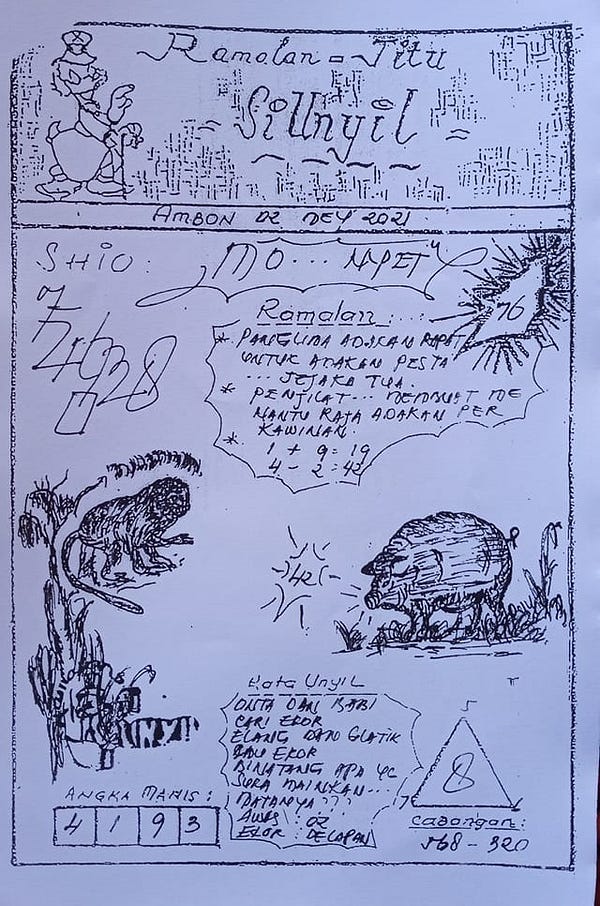 Ramalan = Jitu
= SiUnyil =
AMBON 02 DEY 2021
SHIO: "MO... NYET"
7
74328
0
76
Ramalan:...
* PANGLIMA ADAKAN RAPAT
UNTUK ADAKAN PESTA
... JEJAKA TUA.
* PENJILAT... MEMBUAT ME
NANTU RAJA ADAKAN PER
KAWINAN.
* 1 + 9 = 19
4 - 2 = 42
42
Kata UnyiL
ONTA DAN BABI
CARI EKOR
ELANG DAN GLATIK
ADU EKOR
BINATANG APA YG
SUKA MAINKAN...
MATANYA???
AWAS: 02
EKOR: DELAPAN
UNYI
5
8
7
6
ANGKA MANIS:
4 1 9 3
Cadangan:
568 - 320